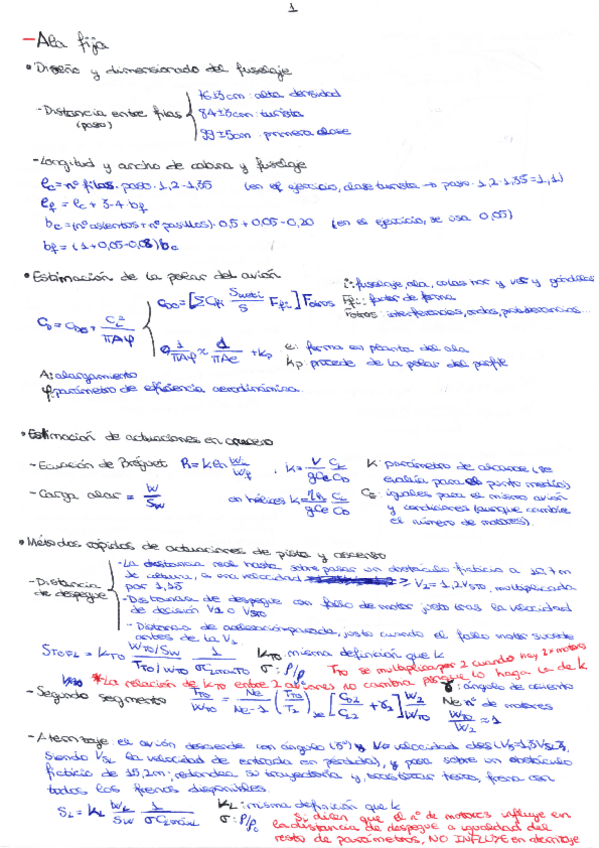 1
- Ala fija
• Diseño y dimensionado del fuselaje
- Distancia entre filas (paso)
76±3cm: alta densidad
84±3cm: turista
99±5cm: primera clase
- Longitud y ancho de cabina y fuselaje
lc = nº filas · paso · 1,2-1,35 (en el ejercicio, clase turista → paso · 1,2-1,35 = 1,1)
lf = lc + 3-4 bf
bc = (nº asientos + nº pasillos) · 0,5 + 0,05-0,20 (en el ejercicio, se usa 0,05)
bf = (1+0,05-0,08) bc
• Estimación de la polar del avión
i: fuselaje, ala, colas hor y ver y góndolas
CD = CD0 + CL²/πAφ
CD0 = [ΣCfi Sweti/S Ffi] Fotros
Ffi: factor de forma
Fotros: interferencias, ondas, protuberancias...
1/πAφ ≈ 1/πAe + kp
e: forma en planta del ala
kp: procede de la polar del perfil
A: alargamiento
φ: parámetro de eficiencia aerodinámica.
• Estimación de actuaciones en crucero
- Ecuación de Bréguet R = k ln Wi/Wf , k = V/gCe CL/CD
k: parámetro de alcance (se evalúa para el punto medio)
- Carga alar = W/Sw
con hélices k = ηp/gCe CL/CD
Ce: iguales para el mismo avión y condiciones (aunque cambie el número de motores).
• Métodos rápidos de actuaciones de pista y ascenso
- Distancia de despegue
- La distancia real hasta sobrepasar un obstáculo ficticio a 10,7m de altura, a una velocidad ≥ V2 = 1,2VSTO, multiplicada por 1,15
- Distancia de despegue con fallo de motor justo tras la velocidad de decisión V1 o VSTO
- Distancia de aceleración-parada, justo cuando el fallo motor sucede antes de la V1
STOFL = kTO WTO/SW / TTO/WTO 1/σCLmaxTO
kTO: misma definición que k
σ: ρ/ρ0
TTO se multiplica por 2 cuando hay 2 motores
* La relación de kTO entre 2 aviones no cambia porque lo haga la de k
- Segundo segmento TTO/WTO = Ne/Ne-1 (TTO/T2) [CD2/CL2 + γ2] W2/WTO
γ: ángulo de ascenso
Ne: nº de motores
WTO/W2 ≈ 1
- Aterrizaje: el avión desciende con ángulo (3°) y
siendo VSL la velocidad de entrada en pérdida), y pasa sobre un obstáculo
ficticio de 15,2m; redondea su trayectoria y, tras tocar tierra, frena con
todos los frenos disponibles.
SL = kL WL/SW 1/σCLmáxL
kL: misma definición que k
σ: ρ/ρ0
Si dicen que el nº de motores influye en
la distancia de despegue a igualdad del
resto de parámetros, NO INFLUYE en aterrizaje